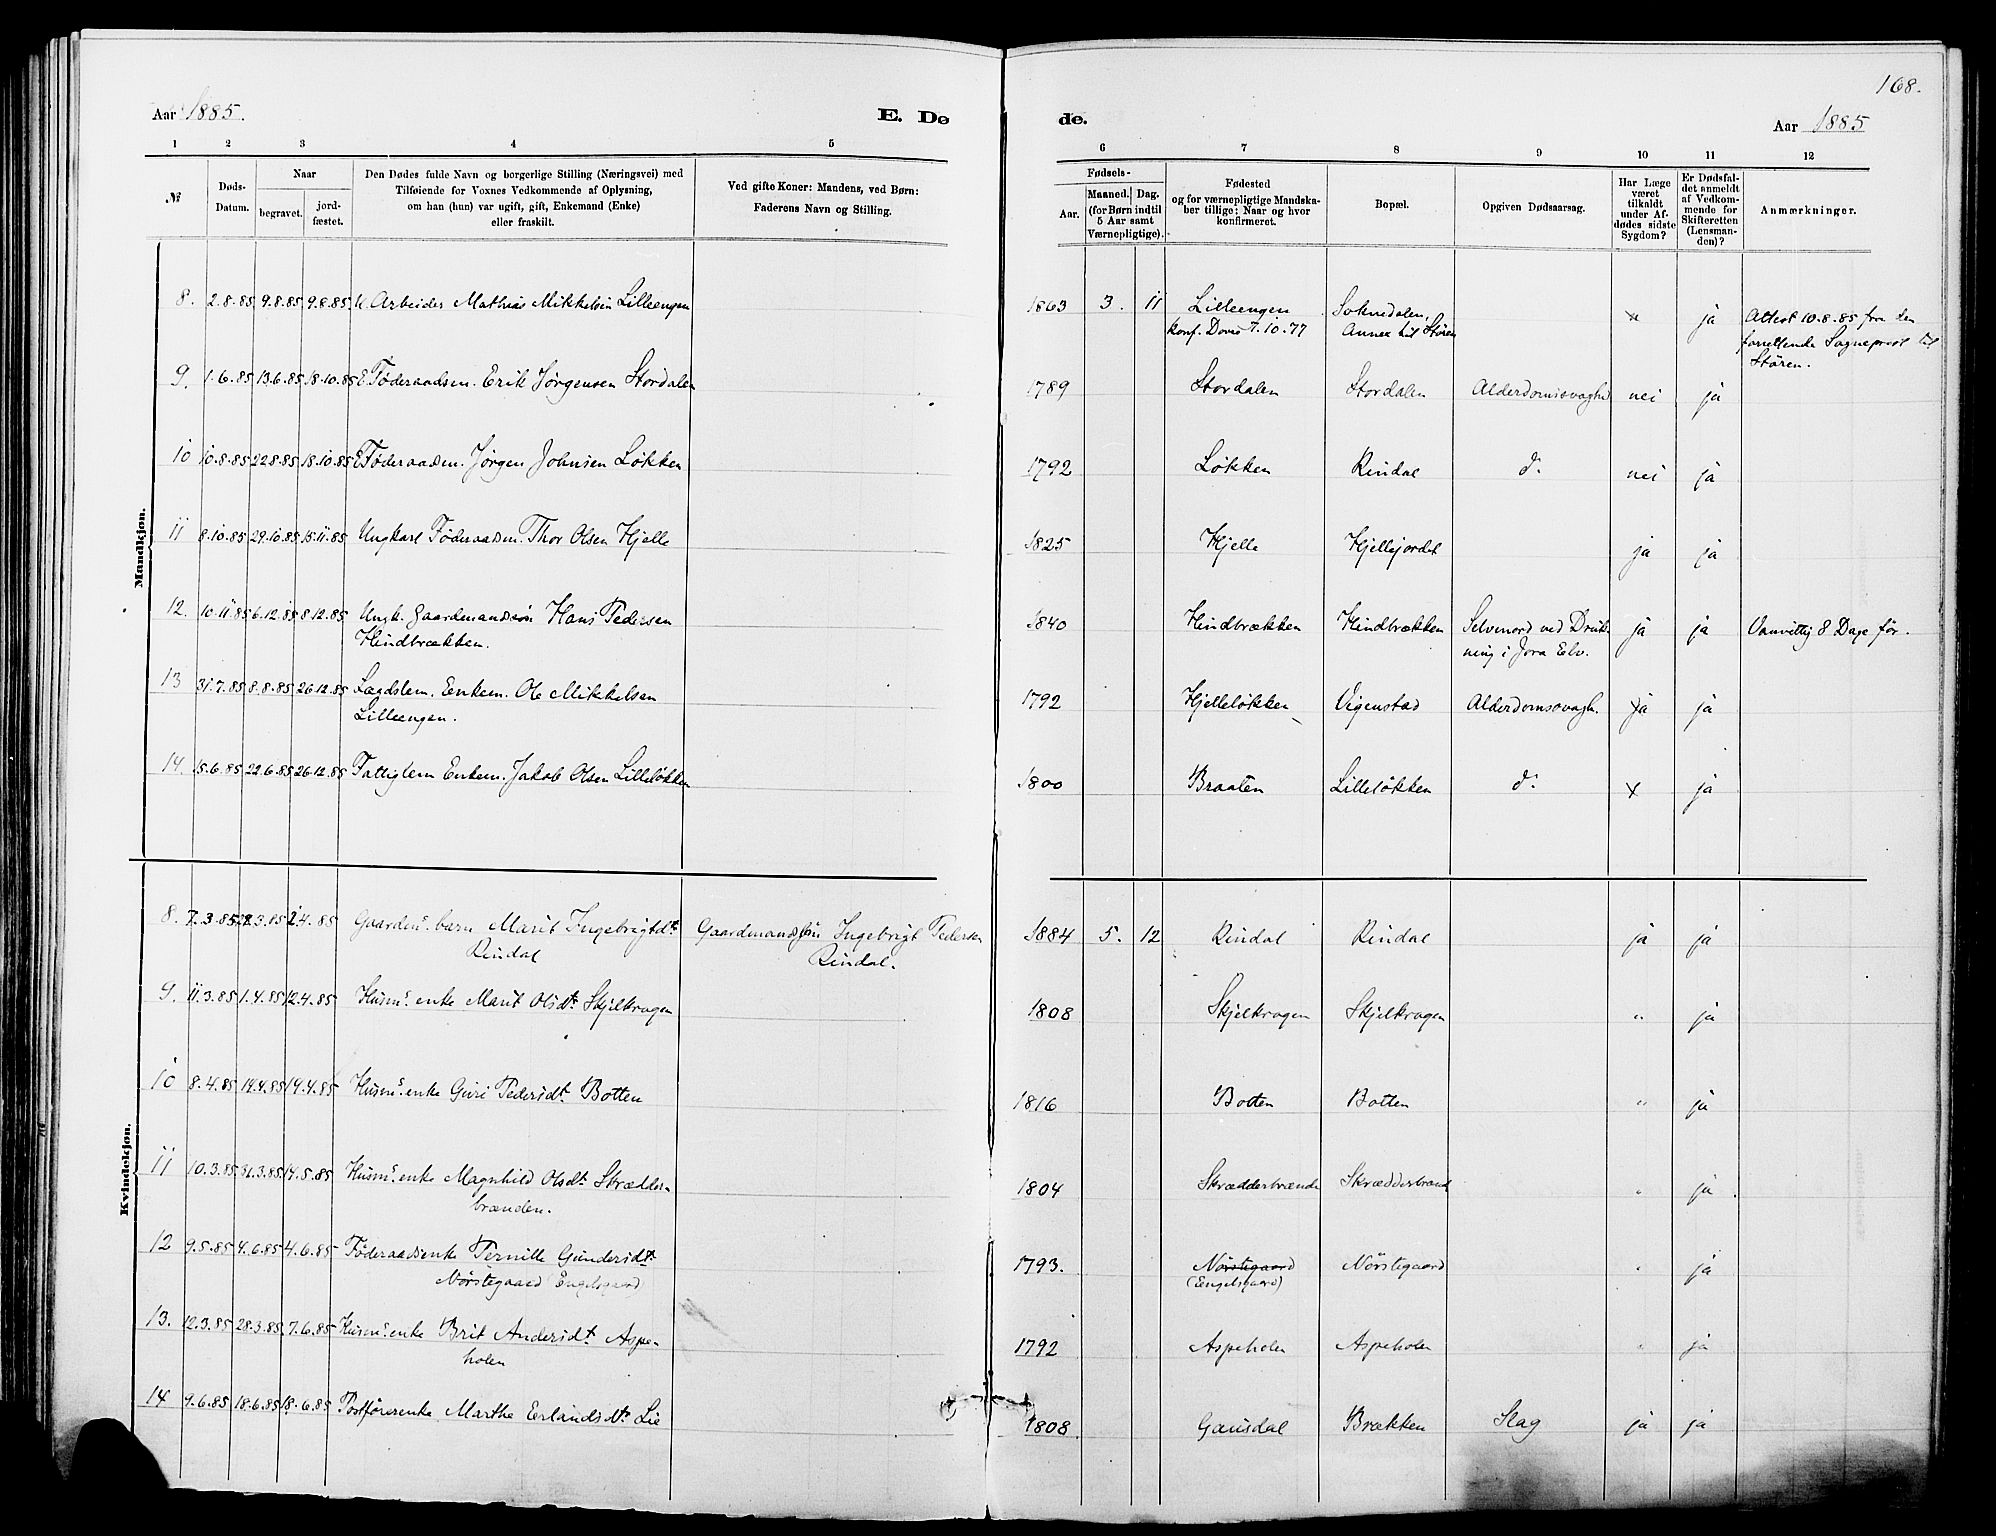 168.
Aar 1885.
E. Dø
de.
Aar 1885
1 2 3 4 5
6 7 8 9 10 11 12
№
Døds-
Datum.
Naar
begravet.
jord-
fæstet.
Den Dødes fulde Navn og borgerlige Stilling (Næringsvei) med
Tilføiende for Voxnes Vedkommende af Oplysning,
om han (hun) var ugift, gift, Enkemand (Enke)
eller fraskilt.
Ved gifte Koner: Mandens, ved Børn:
Faderens Navn og Stilling.
Fødsels-
Aar.
Maaned. Dag.
(for Børn indtil
5 Aar samt
Værnepligtige).
Fødested
og for værnepligtige Mandska-
ber tillige: Naar og hvor
konfirmeret.
Bopæl.
Opgiven Dødsaarsag.
Har Læge
været
tilkaldt
under Af-
dødes sidste
Sygdom?
Er Dødsfal-
det anmeldt
af Vedkom-
mende for
Skifteretten
(Lensman-
den)?
Anmærkninger.
Mandkjøn.
8. 2.8.85 9.8.85 9.8.85 U. Arbeider Mathias Mikkelsen Lilleengen 1863 3. 11 Lilleengen Soknedalen, x ja Attest 10.8.85 fra den
konf. Dovre 7.10.77 Annex til Støren forrettende Sogneprest til
Støren.
9. 1.6.85 13.6.85 18.10.85 E Føderaadsm. Erik Jørgensen Stordalen 1789 Stordalen Stordalen Alderdomssvaghed nei ja
10 10.8.85 22.8.85 18.10.85 E Føderaadsm. Jørgen Johnsen Løkken 1792 Løkken Rindal do nei ja
11 8.10.85 29.10.85 15.11.85 Ungkarl Føderaadsm. Thor Olsen Hjelle 1825 Hjelle Hjellejordet ja ja
12. 10.11.85 6.12.85 8.12.85 Ungk. Gaardmandssøn Hans Pedersen 1840 Hindbrækken Hindbrækken Selvmord ved Druk- ja ja Vanvittig 8 Dage før.
Hindbrækken. ning i Jora Elv.
13 31.7.85 8.8.85 26.12.85 Lægdslem. Enkem. Ole Mikkelsen 1792 Hjelleløkken Vigenstad Alderdomssvagh. ja ja
Lilleengen.
14. 15.6.85 22.6.85 26.12.85 Fattiglem Enkem. Jakob Olsen Lilleløkken 1800 Braaten Lilleløkken do x ja
Kvindekjøn.
8. 7.3.85 3.85 4.85 Gaardms. barn Marit Ingebrigtdt. Gaardmandssøn Ingebrigt Pedersen 1884 5. 12 Rindal Rindal ja ja
Rindal Rindal.
9. 11.3.85 1.4.85 12.4.85 Husms. enke Marit Olsdt. Skjelkragen 1808 Skjelkragen Skjelkragen " ja
10 8.4.85 14.4.85 19.4.85 Husms. enke Guri Pedersdt. Botten 1816 Botten Botten " ja
11 10.3.85 31.3.85 14.5.85 Husms. enke Magnhild Olsdt. Skrædder- 1804 Skrædderbrænde Skrædderbrænd " ja
brænden.
12 9.5.85 4.6.85 4.6.85 Føderaadsenke Pernille Gundersdt. 1793. Nørstegaard Nørstegaard " ja
Nørstegaard (Engelsgaard) (Engelsgaard)
13. 12.3.85 28.3.85 7.6.85 Husms. enke Brit Andersdt. Aspe- 1792 Aspeholen Aspeholen " ja
holen
14 9.6.85 18.6.85 18.6.85 Postførerenke Marthe Erlandsdt. Lie 1808 Gausdal Brækken Slag ja ja